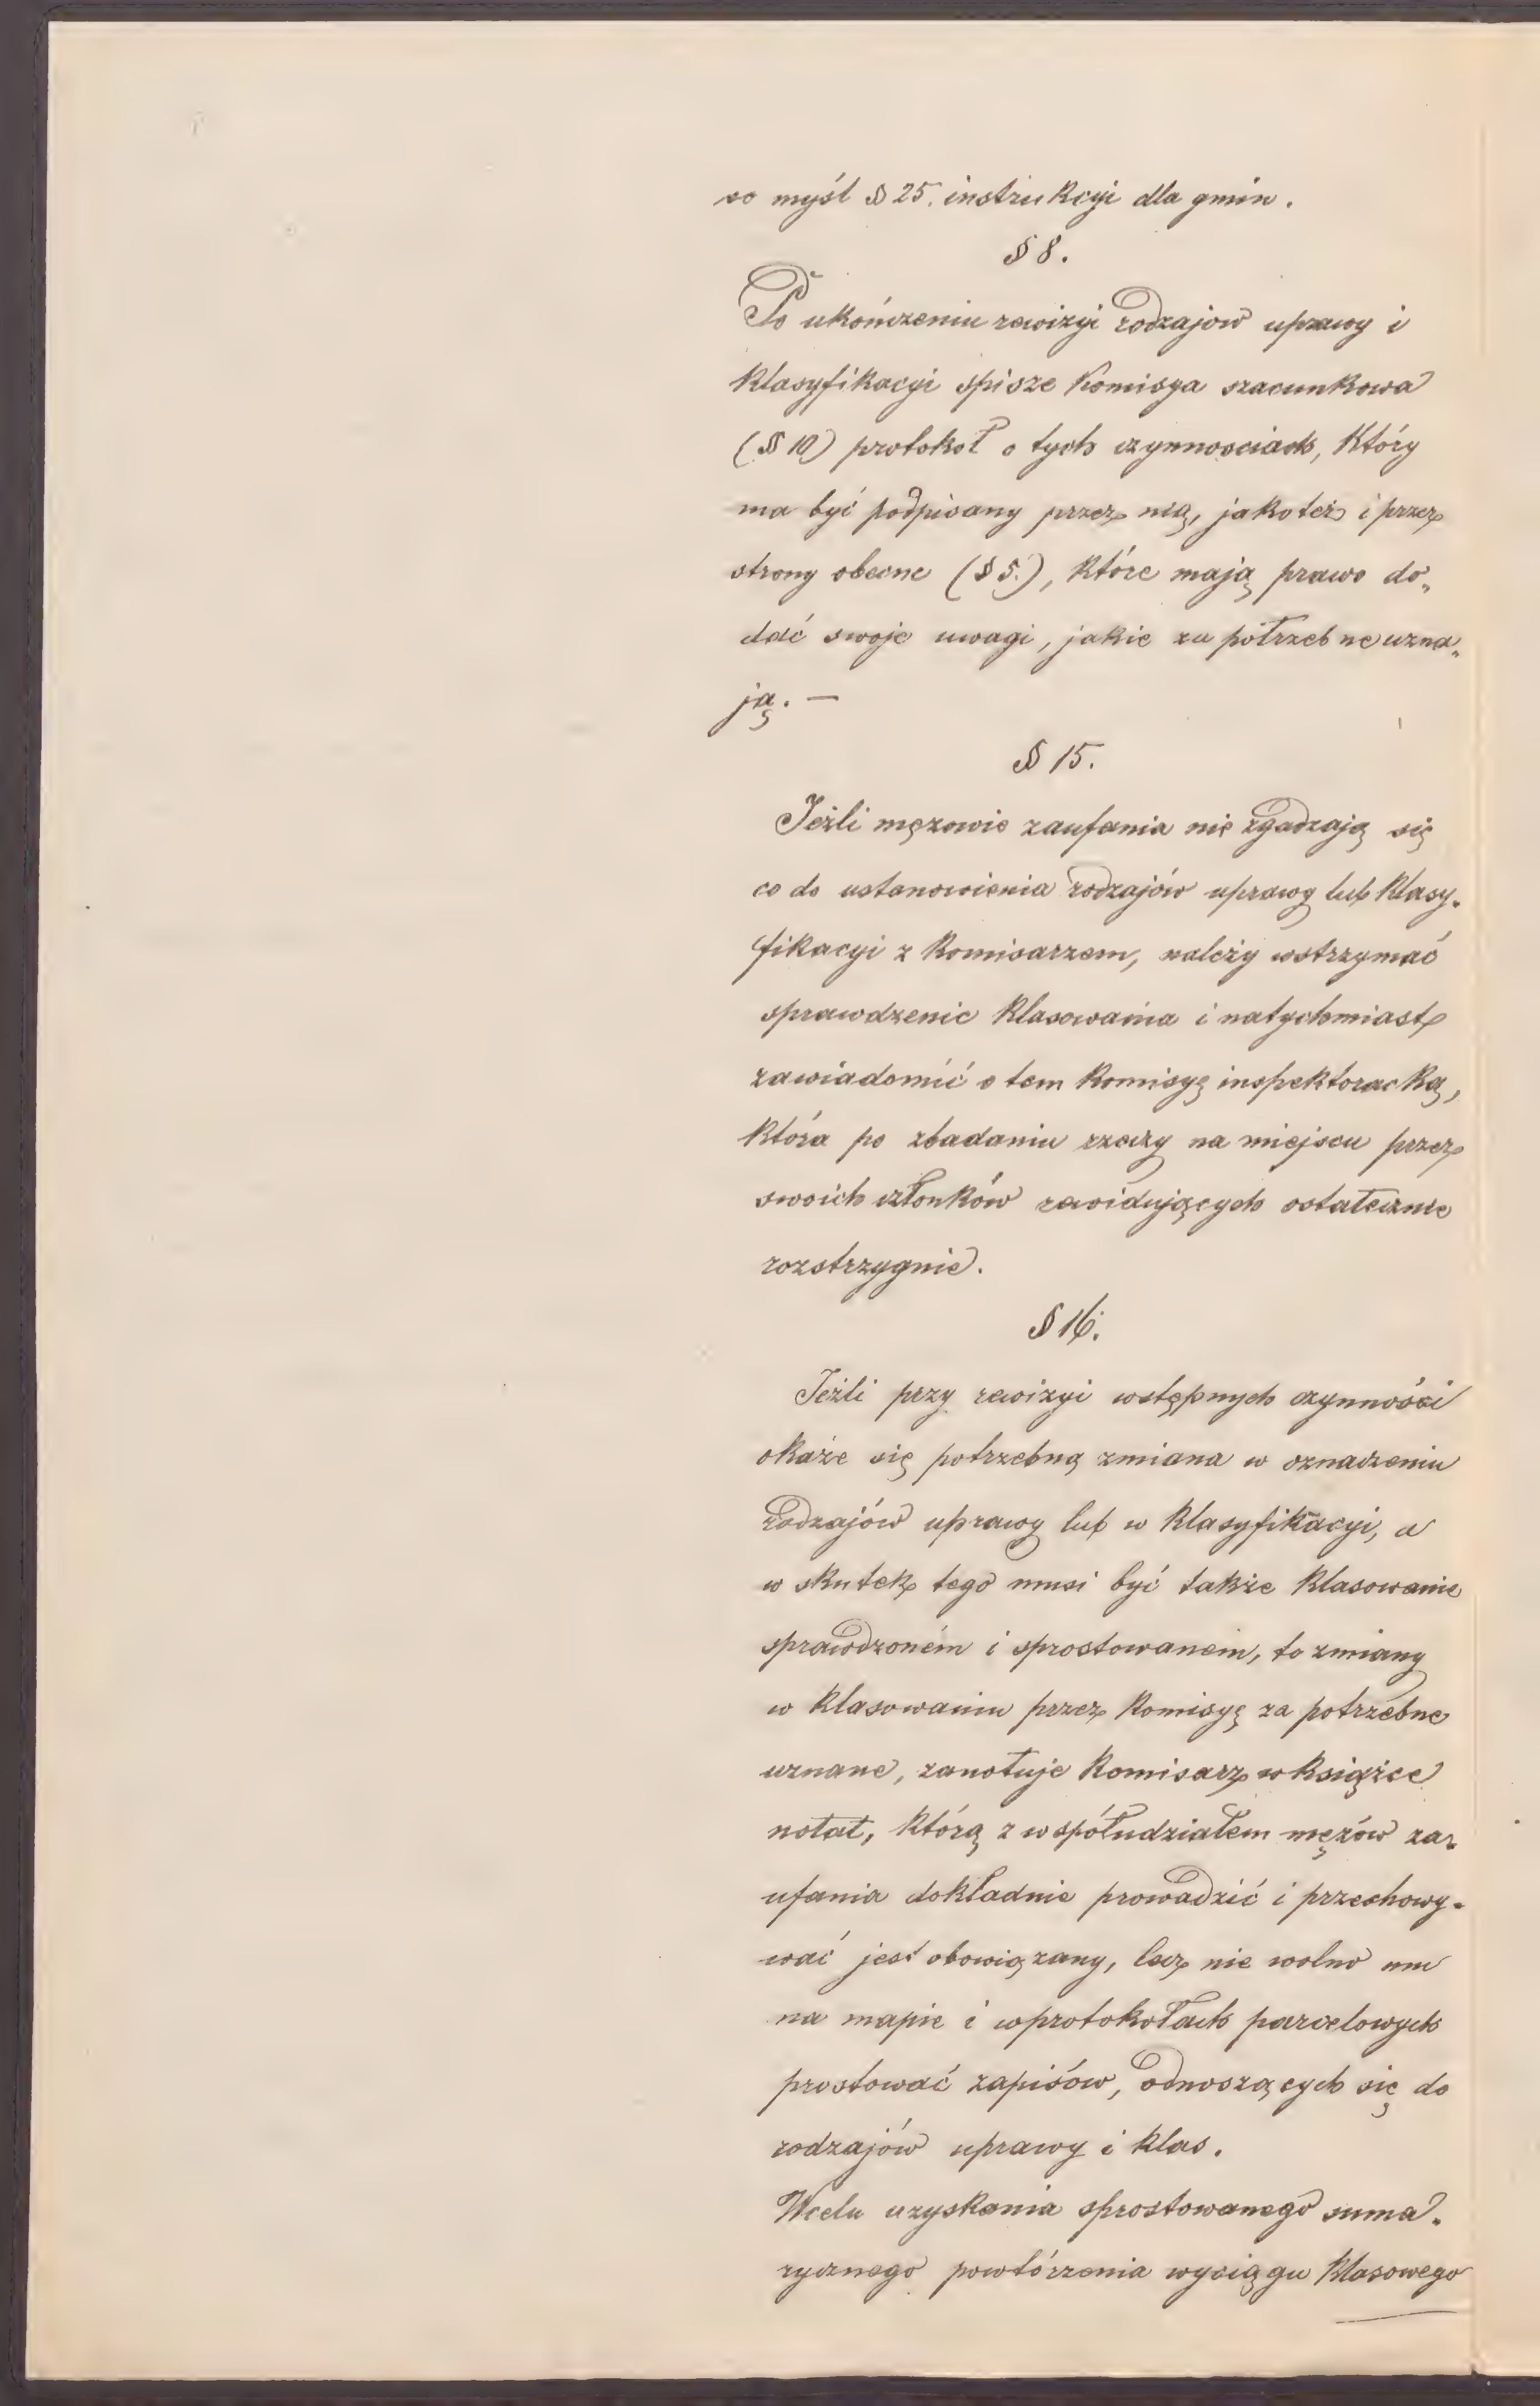 w myśl § 25. instrukcyi dla gmin.
§ 8.
Po ukończeniu rewizyi rodzajów uprawy i
klasyfikacyi spisze Komisya szacunkowa
(§ 10) protokoł o tych czynnościach, który
ma być podpisany przez nią, jakoteż i przez
strony obecne (§ 5.), które mają prawo do„
dać swoje uwagi, jakie za potrzebne uzna„
ją. —
§ 15.
Jeżli mężowie zaufania nie zgadzają się
co do ustanowienia rodzajów uprawy lub klasy„
fikacyi z komisarzem, należy wstrzymać
sprawdzenie klasowania i natychmiast
zawiadomić o tem komisyę inspektoracką,
która po zbadaniu rzeczy na miejscu przez
swoich członków rewidujących ostatecznie
rozstrzygnie.
§ 16.
Jeżli przy rewizyi wstępnych czynności
okaże się potrzebną zmiana w oznaczeniu
rodzajów uprawy lub w klasyfikacyi, a
w skutek tego musi być także klasowanie
sprawdzoném i sprostowaném, to zmiany
w klasowaniu przez komisyę za potrzebne
uznane, zanotuje komisarz w książce
notat, którą z współudziałem mężów za„
ufania dokładnie prowadzić i przechowy„
wać jest obowiązany, lecz nie wolno mu
na mapie i w protokołach parcelowych
prostować zapisów, odnoszących się do
rodzajów uprawy i klas.
W celu uzyskania sprostowanego suma„
rycznego powtórzenia wyciągu klasowego